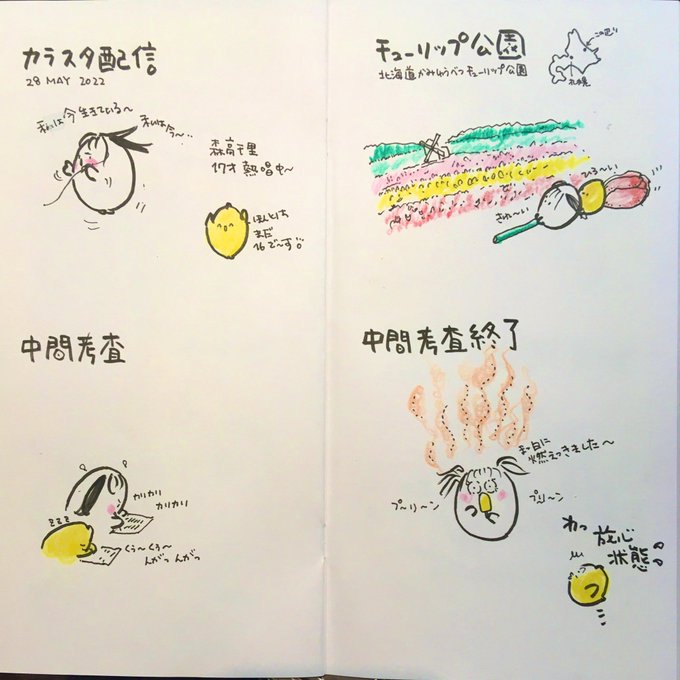 カラスタ配信
28 MAY 2022
私は今生きている〜
私は今〜‥
森高千里
17才 熱唱中〜
ほんとは
まだ
16で〜す
中間考査
カリカリ
カリカリ
zzzz
くぅ〜くぅ〜
んがっ んがっ
チューリップ公園
北海道かみゆうべつチューリップ公園
この辺り
札幌
ひろ〜い
きれ〜い
中間考査終了
まっ白に
燃えつきました〜
プ〜リ〜ン
プリ〜ン
わっ
放心
状態